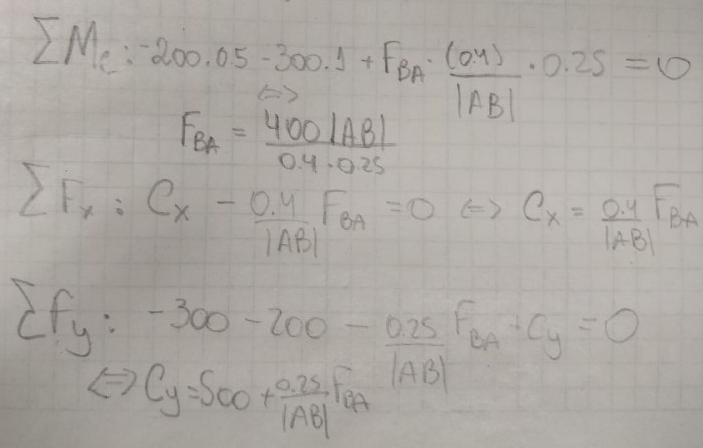 ΣM_c: -200·0.5 - 300·1 + F_BA · (0.4)/|AB| · 0.25 = 0
⇔
F_BA = 400|AB|/(0.4·0.25)
ΣF_x: C_x - 0.4/|AB| F_BA = 0 ⇔ C_x = 0.4/|AB| F_BA
ΣF_y: -300 - 200 - 0.25/|AB| F_BA + C_y = 0
⇔ C_y = 500 + 0.25/|AB| F_BA